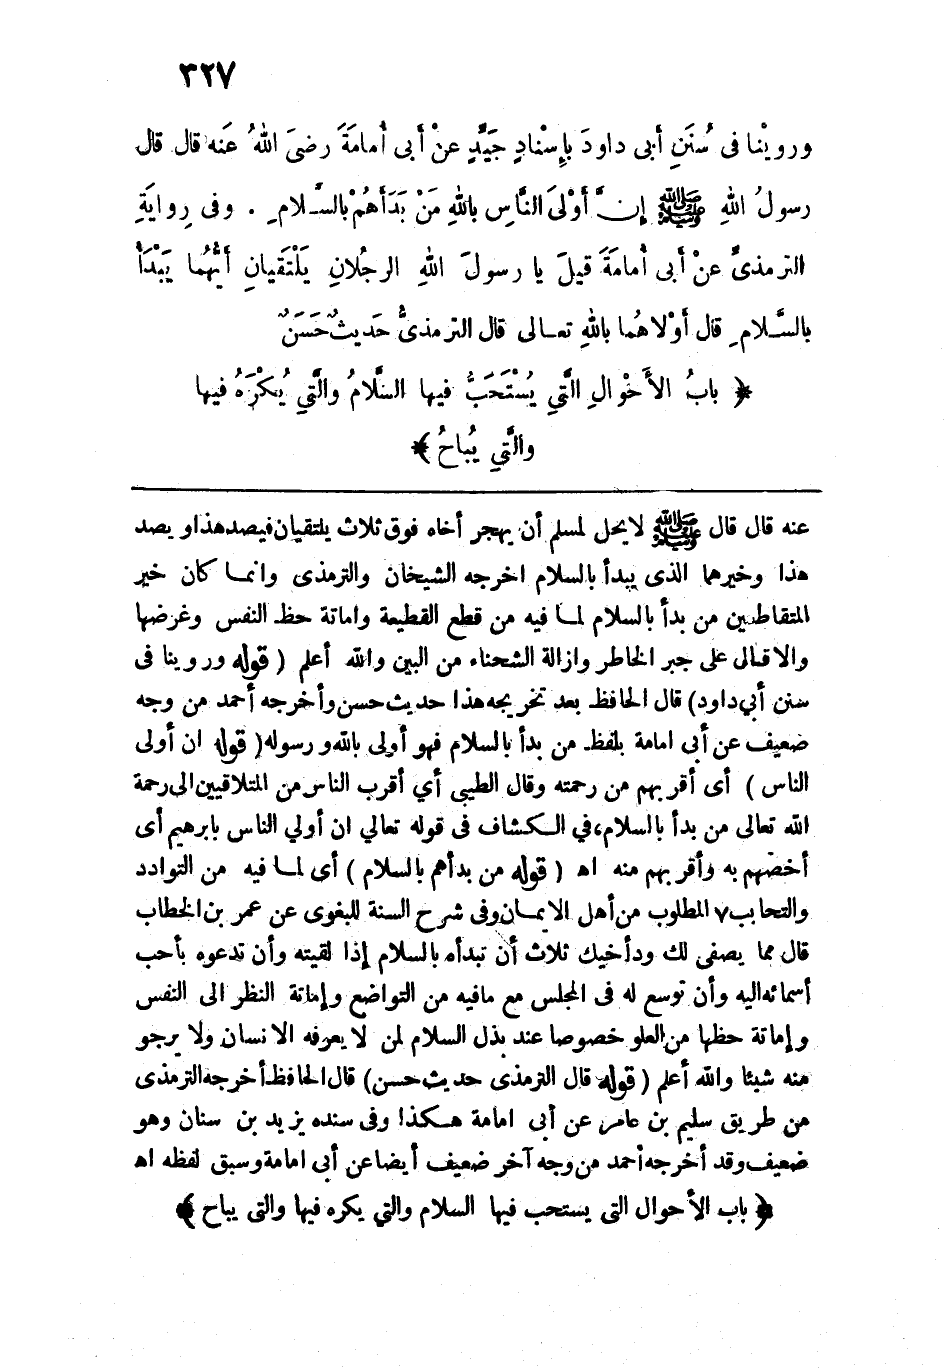 ٣٢٧
وروينْا فى سُنَنِ أبى داودَ بإِسْنادٍ جَيِّدٍ عنْ أبى أُمامَةَ رضىَ اللهُ عَنه قال قال
رسولُ اللهِ ﷺ إنَّ أَوْلىَ النَّاسِ باللهِ مَنْ بَدَأَهُمْ بالسَّلامِ . وفى رِوايَةِ
الترمذىِّ عنْ أبى أُمامَةَ قيلَ يا رسولَ اللهِ الرجُلانِ يَلْتَقيانِ أَيُّهُما يَبْدَأُ
بالسَّلامِ قال أَوْلاهُما باللهِ تعالى قال الترمذىُّ حَديثٌ حَسَنٌ
﴿ بابُ الأَحْوالِ الَّتِي يُسْتَحَبُّ فيها السَّلامُ والَّتِي يُكْرَهُ فيها
والَّتِي يُباحُ ﴾
عنه قال قال ﷺ لا يحل لمسلم أن يهجر أخاه فوق ثلاث يلتقيان فيصد هذا ويصد
هذا وخيرهما الذى يبدأ بالسلام اخرجه الشيخان والترمذى وانما كان خير
المتقاطعين من بدأ بالسلام لما فيه من قطع القطيعة واماتة حظ النفس وغرضها
والاقبال على جبر الخاطر وازالة الشحناء من البين والله أعلم ( قوله وروينا فى
سنن أبي داود) قال الحافظ بعد تخريجه هذا حديث حسن وأخرجه أحمد من وجه
ضعيف عن أبى امامة بلفظ من بدأ بالسلام فهو أولى بالله ورسوله ( قوله ان أولى
الناس ) أى أقربهم من رحمته وقال الطيبى أي أقرب الناس من المتلاقيين الى رحمة
الله تعالى من بدأ بالسلام،في الكشاف فى قوله تعالي ان أولي الناس بابرهيم أى
أخصهم به وأقربهم منه اه ( قوله من بدأهم بالسلام ) أى لما فيه من التوادد
والتحابب٧ المطلوب من أهل الايمان وفى شرح السنة للبغوى عن عمر بن الخطاب
قال مما يصفى لك ود أخيك ثلاث أن تبدأه بالسلام إذا لقيته وأن تدعوه بأحب
أسمائه اليه وأن توسع له فى المجلس مع مافيه من التواضع وإماتة النظر الى النفس
وإماتة حظها من العلو خصوصا عند بذل السلام لمن لا يعرفه الانسان ولا يرجو
منه شيئا والله أعلم ( قوله قال الترمذى حديث حسن) قال الحافظ أخرجه الترمذى
من طريق سليم بن عامر عن أبى امامة هكذا وفى سنده يزيد بن سنان وهو
ضعيف وقد أخرجه أحمد من وجه آخر ضعيف أيضا عن أبى امامة وسبق لفظه اه
﴿ باب الأحوال التى يستحب فيها السلام والتي يكره فيها والتى يباح ﴾